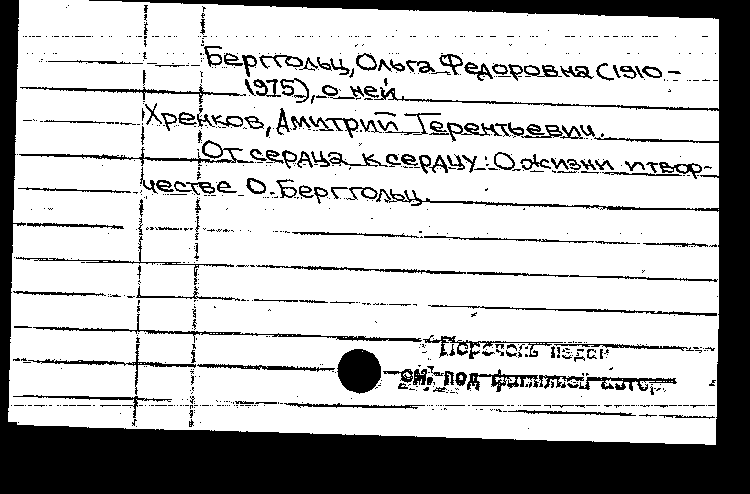 Берггольц, Ольга Федоровна (1910–
1975), о ней.
Хренков, Дмитрий Терентьевич.
От сердца к сердцу: О жизни и твор-
честве О. Берггольц.
Перечень издан
см. под фамилией автора